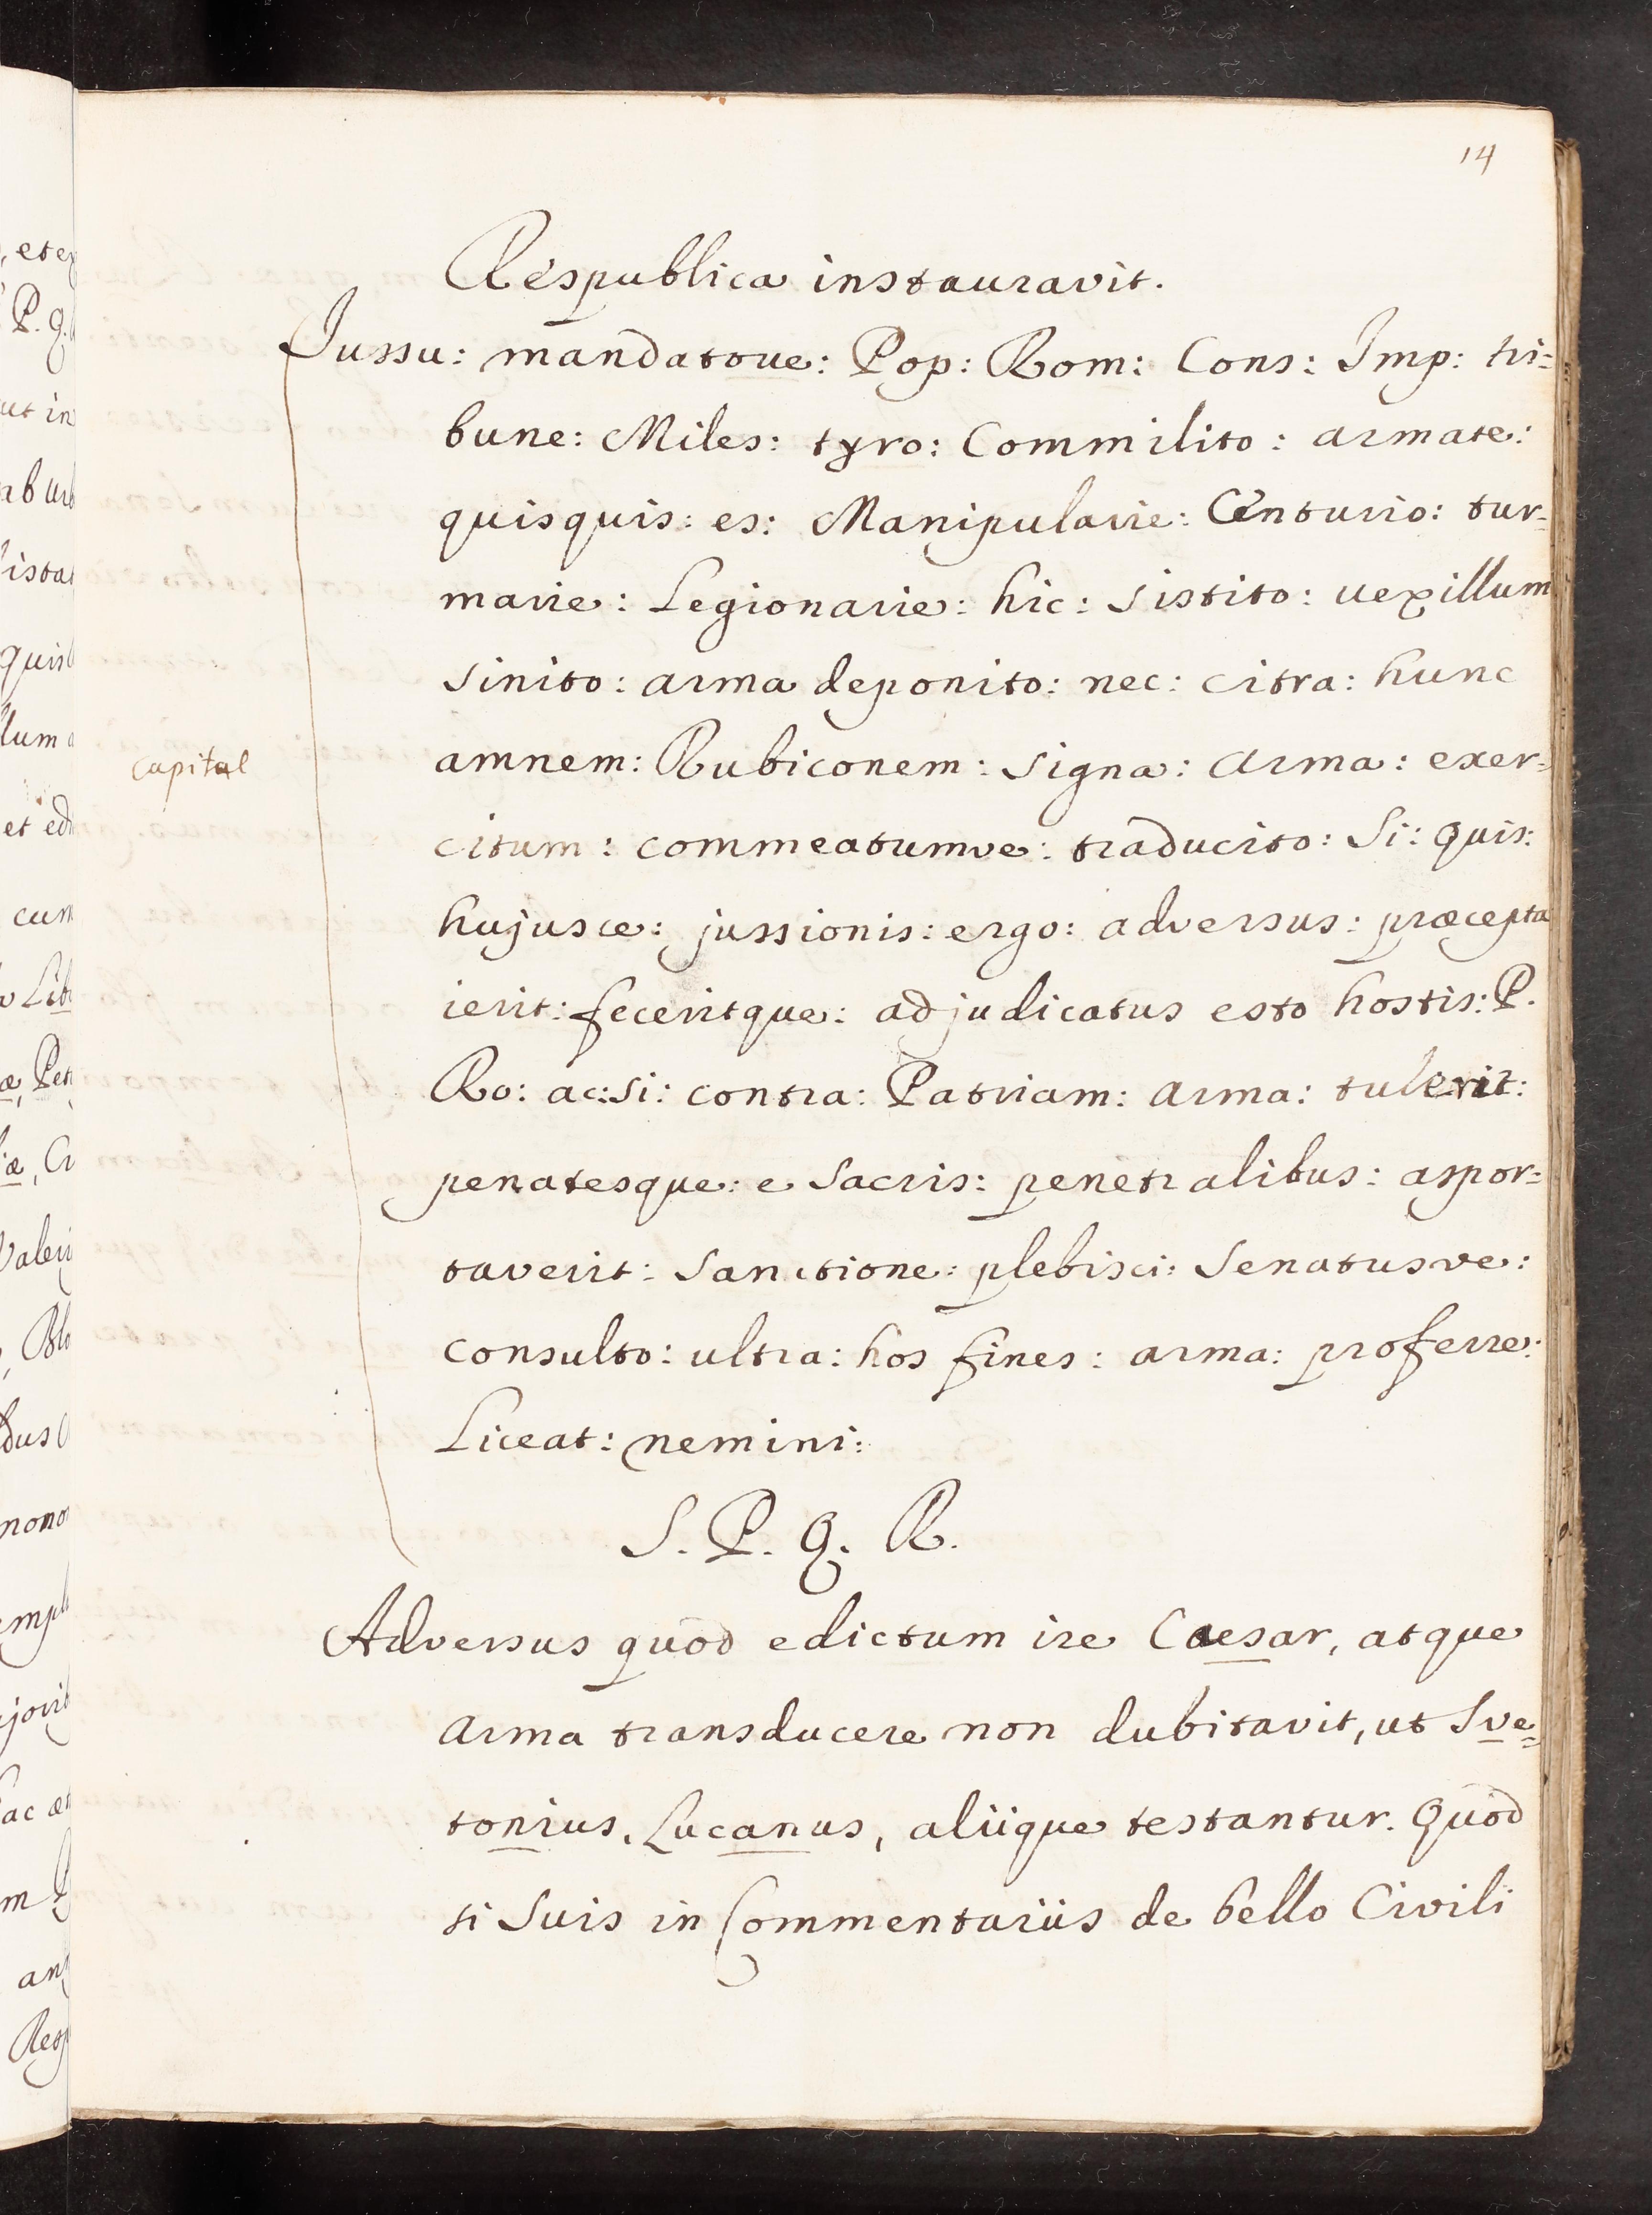 14
Respublica instauravit.
Jussu: mandatoue: Pop: Rom: Cons: Imp: tri=
bune: Miles: tyro: Commilito: armate:
quisquis: es: Manipularie: Centurio: tur=
marie: Legionarie: hic: sistito: uexillum
sinito: arma deponito: nec: citra: hunc
capital
amnem: Rubiconem: signa: arma: exer=
citum: commeatumve: traducito: Si: quis:
hujusce: jussionis: ergo: adversus: præcepta
ierit: feceritque: adjudicatus esto hostis: P.
Ro: ac: si: contra: Patriam: arma: tulerit:
penatesque: e sacris: penetralibus: aspor=
taverit: Sanctione: plebisci: Senatusve:
consulto: ultra: hos fines: arma: proferre:
Liceat: nemini:
S. P. Q. R.
Adversus quod edictum ire Caesar, atque
arma transducere non dubitavit, ut Sve=
tonius, Lucanus, aliique testantur. Quod
si suis in Commentariis de bello Civili